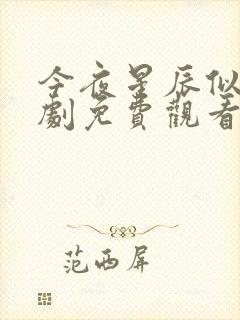 今夜星辰似
劇免費觀看
范西屏